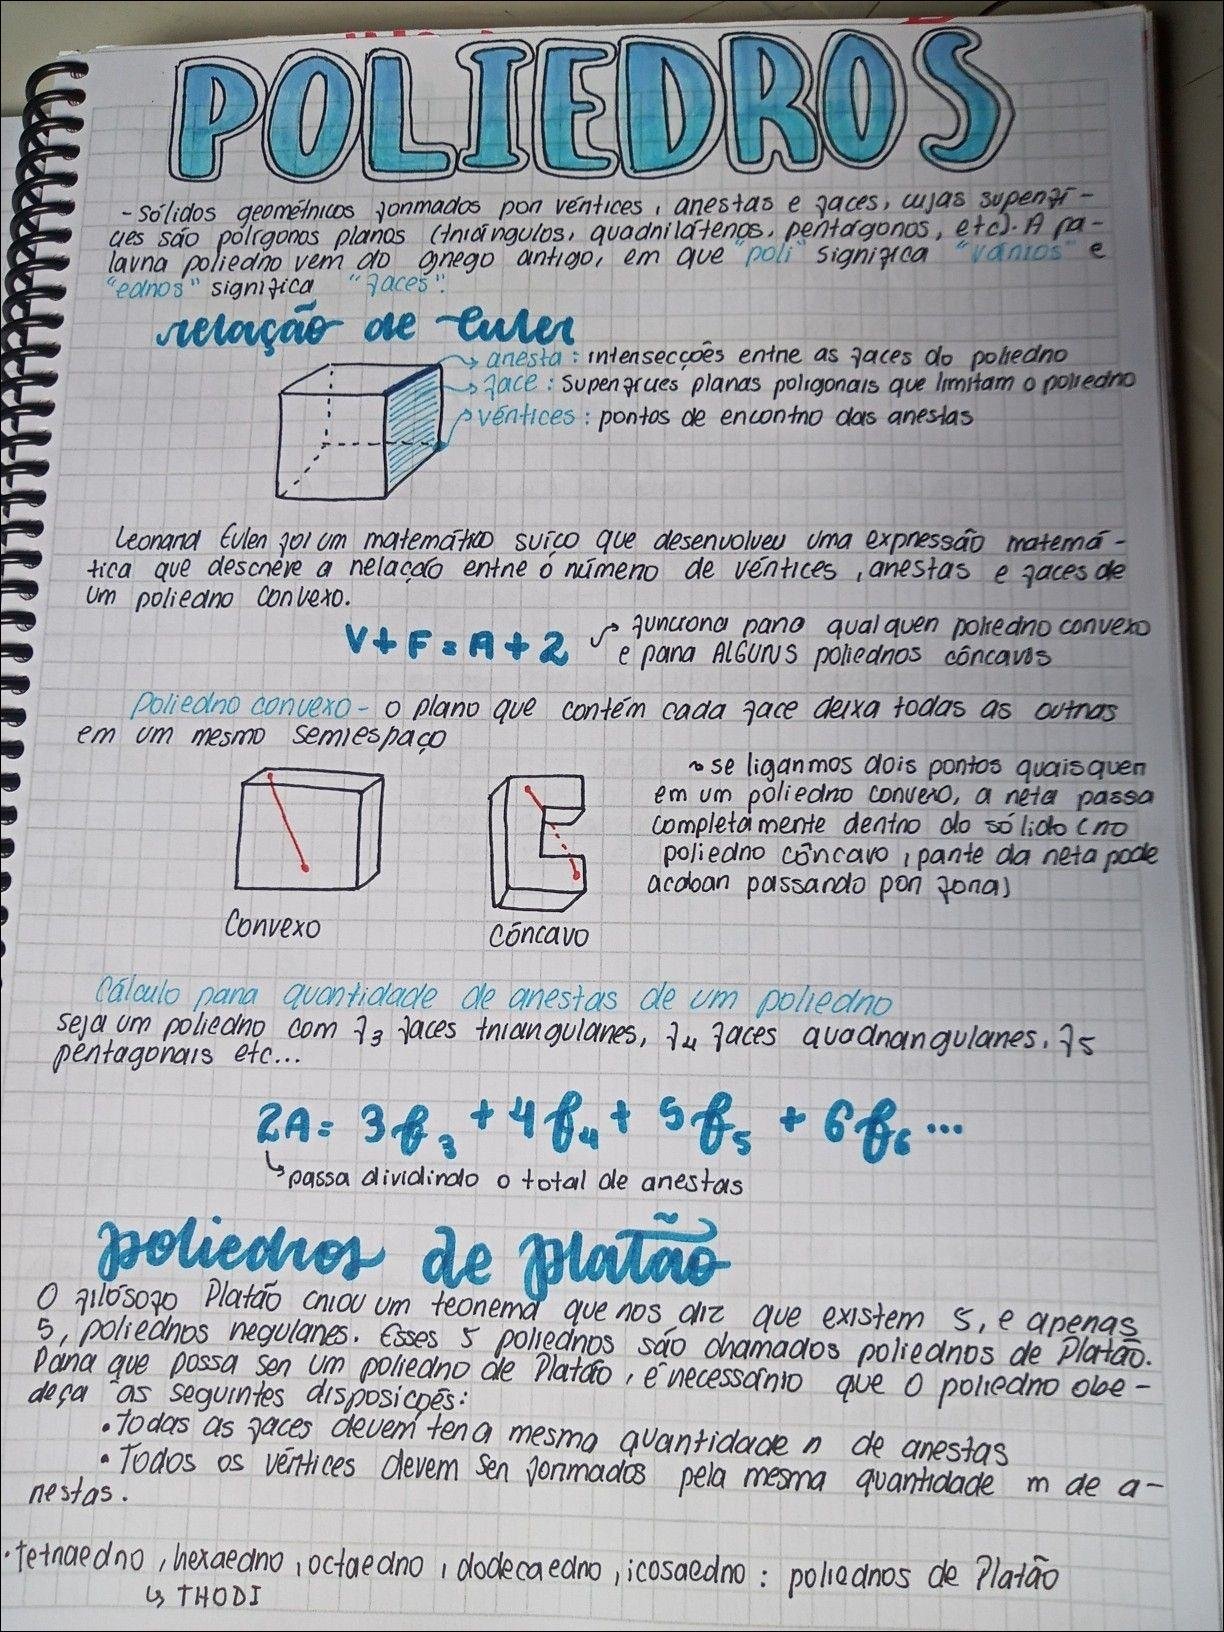 POLIEDROS
- Sólidos geométricos formados por vértices, arestas e faces, cujas superfí-
cies são polígonos planos (triângulos, quadriláteros, pentágonos, etc). A pa-
lavra poliedro vem do grego antigo, em que "poli" significa "vários" e
"edros" significa "faces".
relação de Euler
aresta: intersecções entre as faces do poliedro
face: superfícies planas poligonais que limitam o poliedro
vértices: pontos de encontro das arestas
Leonard Euler foi um matemático suíço que desenvolveu uma expressão matemá-
tica que descreve a relação entre o número de vértices, arestas e faces de
um poliedro convexo.
V + F = A + 2
funciona para qualquer poliedro convexo
e para ALGUNS poliedros côncavos
Poliedro convexo - o plano que contém cada face deixa todas as outras
em um mesmo semiespaço
~ se ligarmos dois pontos quaisquer
em um poliedro convexo, a reta passa
completamente dentro do sólido (no
poliedro côncavo, parte da reta pode
acabar passando por fora)
Convexo
Côncavo
Cálculo para quantidade de arestas de um poliedro
seja um poliedro com f3 faces triangulares, f4 faces quadrangulares, f5
pentagonais etc...
2A = 3f3 + 4f4 + 5f5 + 6f6 ...
↳ passa dividindo o total de arestas
poliedros de platão
O filósofo Platão criou um teorema que nos diz que existem 5, e apenas
5, poliedros regulares. Esses 5 poliedros são chamados poliedros de Platão.
Para que possa ser um poliedro de Platão, é necessário que o poliedro obe-
deça às seguintes disposições:
• Todas as faces devem ter a mesma quantidade n de arestas
• Todos os vértices devem ser formados pela mesma quantidade m de a-
restas.
• tetraedro, hexaedro, octaedro, dodecaedro, icosaedro: poliedros de Platão
↳ THODI